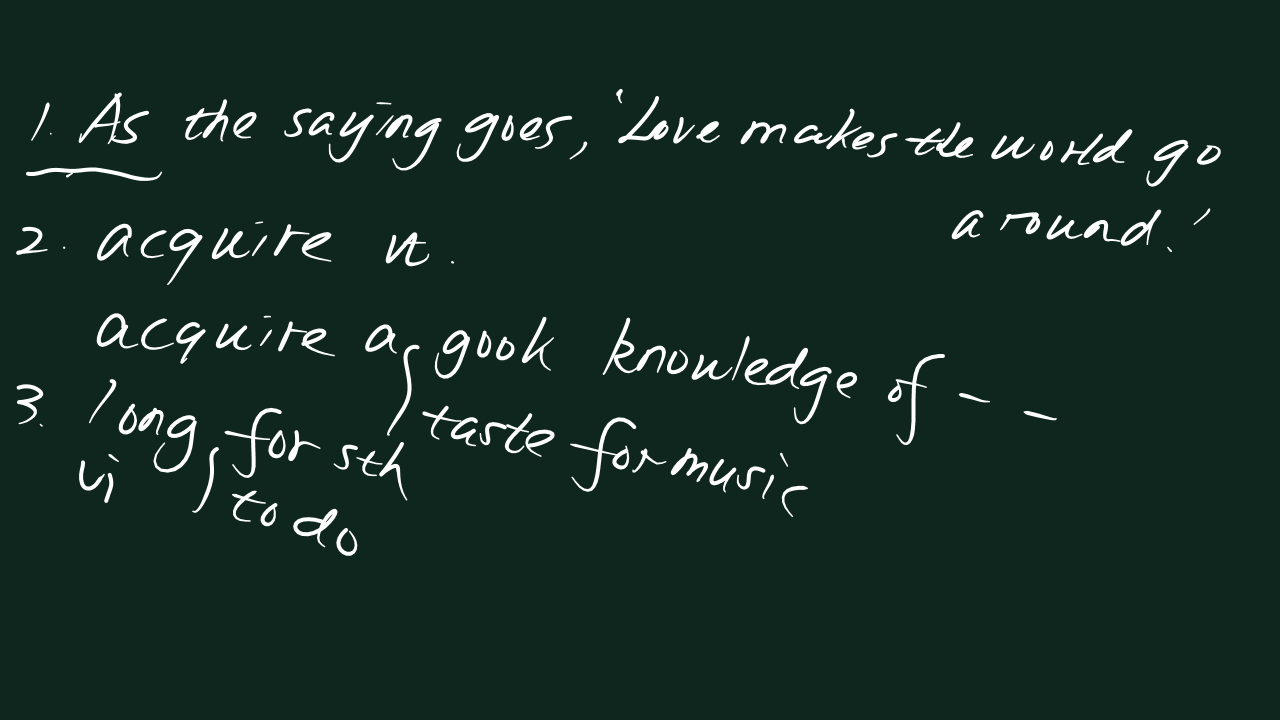 1. As the saying goes, 'Love makes the world go
around.'
2. acquire vt.
acquire a good knowledge of - -
taste for music
3. long for sth
vi to do